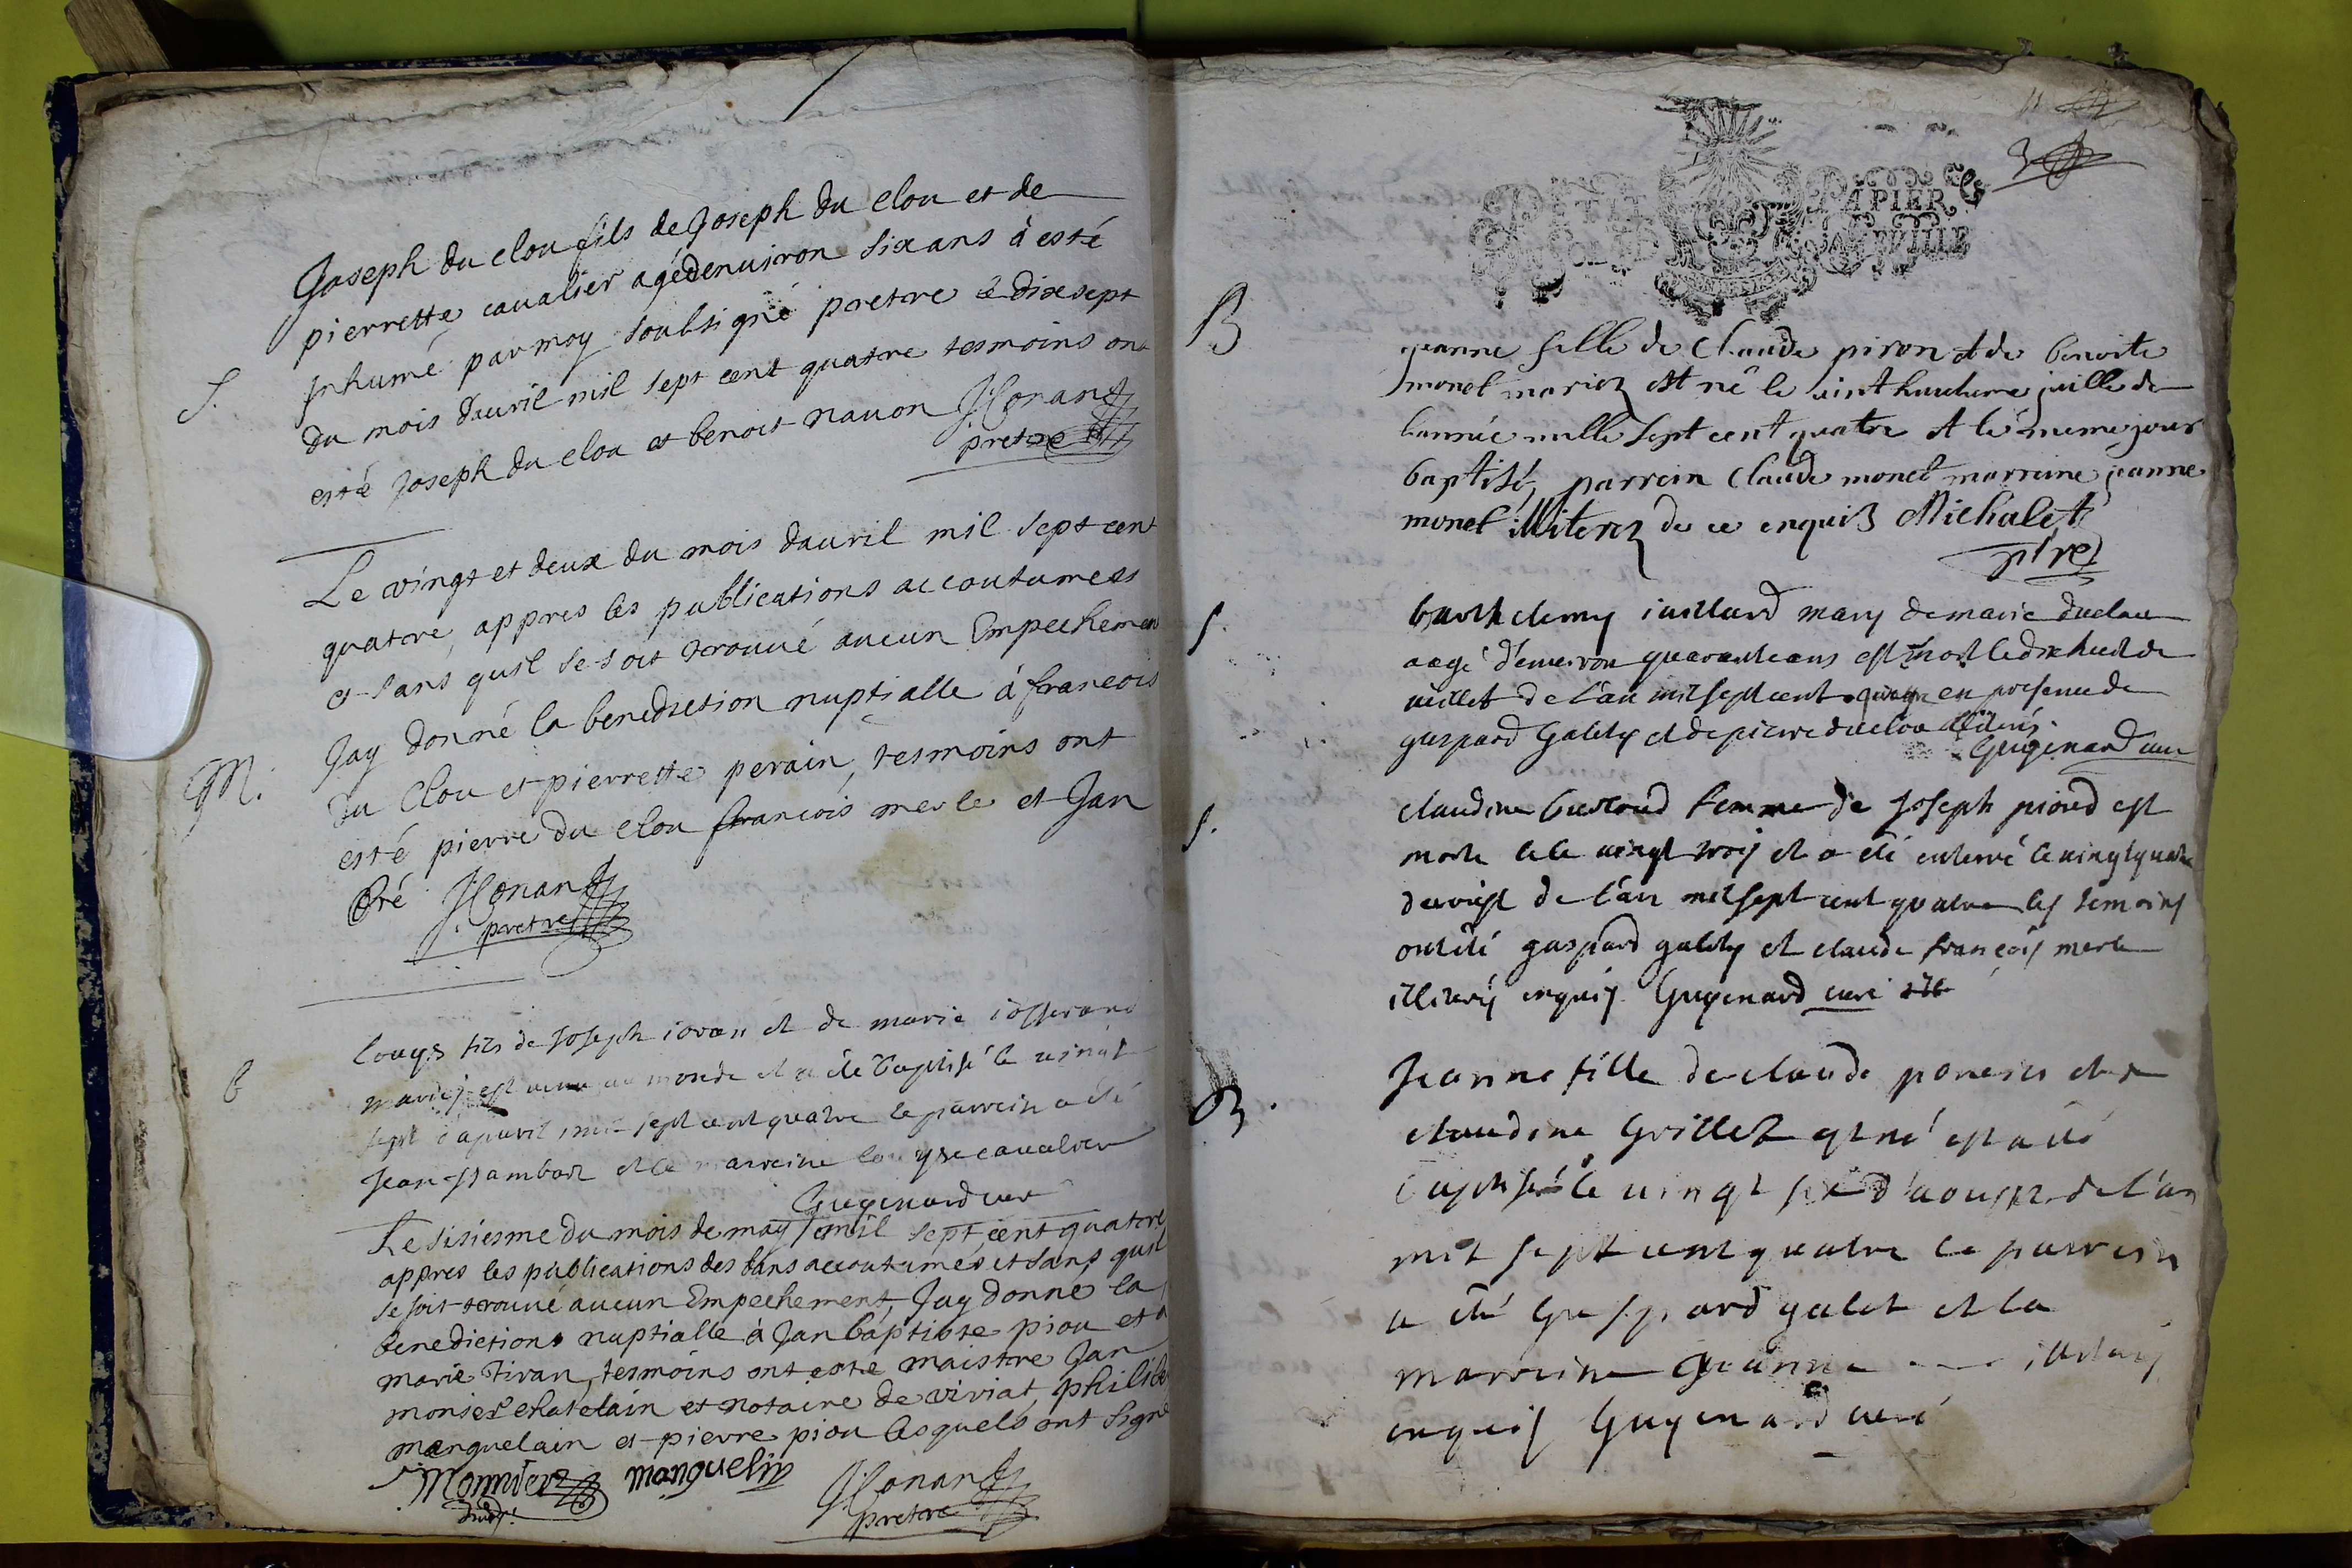 Joseph du clou fils de Joseph du clou et de
pierrette caualier agé denuiron six ans à esté
S. Inhumé par moy soubsigné pretre le dixsept
du mois dauril mil sept cent quatre tesmoins ont
esté Joseph du clou et benoit nauon JConand
pretre
Le vingt et deux du mois dauril mil sept cent
quatre, appres les publications accoutumees
et sans quil se soit trouué aucun Empechement
Jay donné la benediction nuptialle à francois
M. du Clou et pierrette perain, tesmoins ont
esté pierre du clou francois merle et Jan
Pré JConand
pretre
b Louys fils de Joseph iovan et de marie iosserand
mariés est venu au monde et a été baptisé le vingt
sept d'apuril mil sept cent quatre le parrein a été
Jean Jambon et la marreine louyse caualier
Guyenard curé
Le sisiesme du mois de may mil sept cent quatre
appres les publications des bans accoutumés et sans quil
se soit trouué aucun Empechement, Jay donné la
benediction nuptialle à Jan baptiste piou et a
marie Tivan, tesmoins ont esté maistre Jan
monier chatelain et notaire de viriat, philibe
manguelain et pierre piou lesquels ont signé
Monnier manguelin JConand
pretre
PETIT PAPIER
3
B jeanne fille de Claude piron et de benoite
monet mariez est né le vint huictieme juille de
l'année mille sept cent quatre et le meme jour
baptisé, parrein Claude monet marreine jeanne
monet illiterez de ce enquis Michalet
ptre
S. barthelemy iaillard mary de marie duclou
aagé d'enuiron quarante ans est mort le dixhuict de
iuillet de l'an mil sept cent quatre en presence de
gaspard Galety et de pierre duclou illiterés.
Guyenard curé
S. claudine buiroud femme de Joseph pioud est
morte le vingt trois et a été enterré le vingt quatre
de l'an mil sept cent quatre les temoins
ont été gaspard galety et claude françois merle
illiterés enquis Guyenard curé
B. Jeanne fille de claude et de
claudine Grillet est né et a été
baptisé le vingt six d'aoust de l'an
mil sept cent quatre le parrein
a été Gaspard galet et la
marreine Jeanne
enquis Guyenard curé